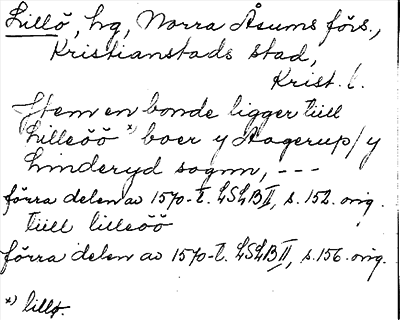 Lillö, hg, Norra Åsums förs.,
Kristianstads stad,
Krist. l.
Item en bonde ligger tiill
Lilleöö *) boer y Aagerup/y
Linderyd sognn, ---
förra delen av 1570-t. LSLB II, s. 152. orig.
tiill lilleöö
förra delen av 1570-t. LSLB II, s. 156. orig.
*) lillø.